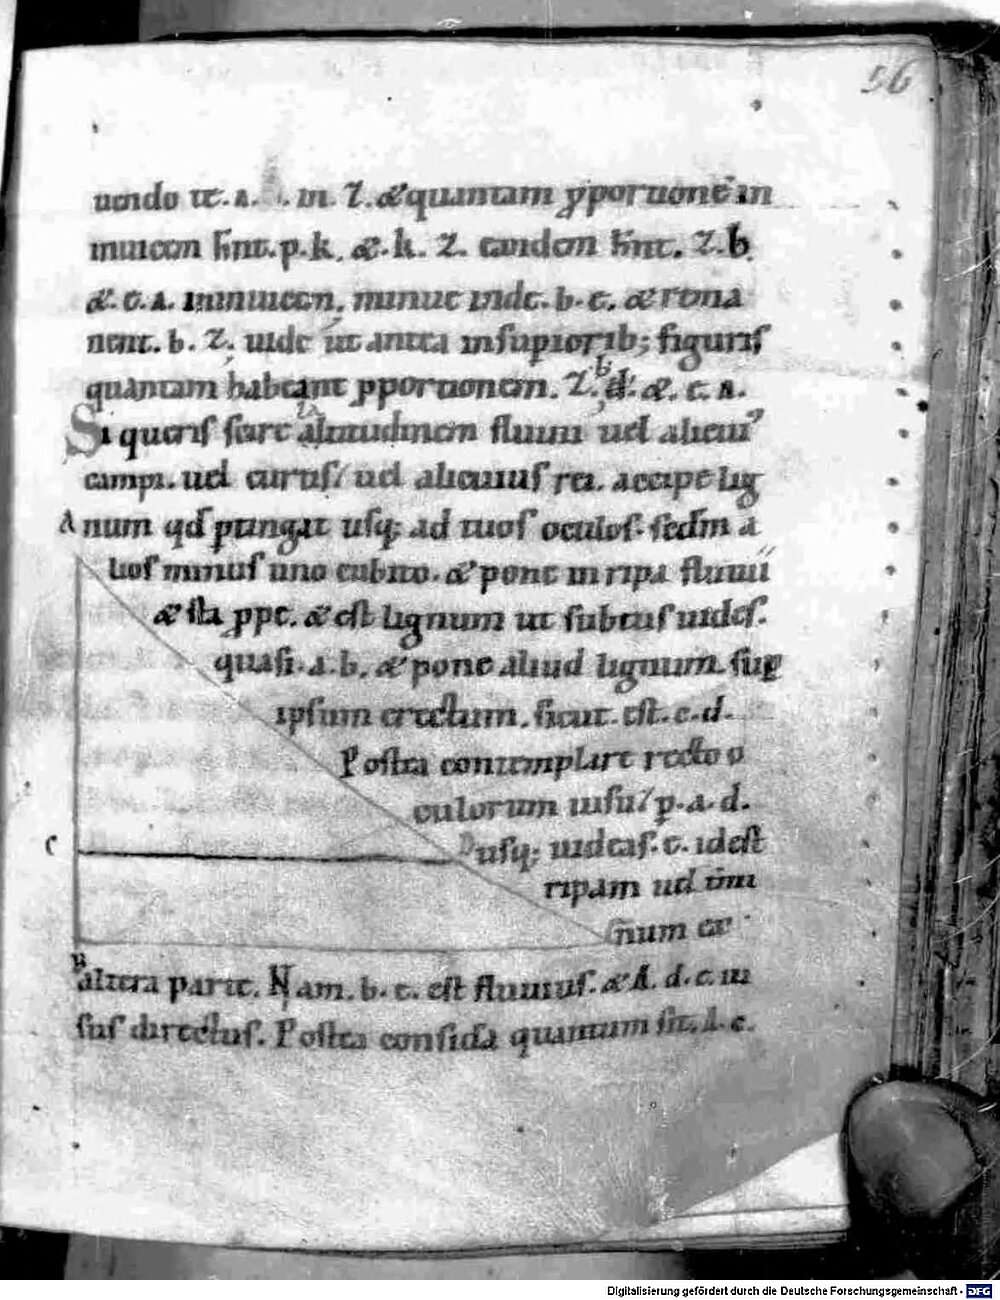 56
uendo te. a. in. Z. & quantam p̱portionē in
inuicem hn̄t. p. k. &. k. Z. eandem hn̄t. Z. b
&. e. a. inuicem, minue inde. b. e. & rema
nent. b. Z. uide ut antea in supiorib; figuris
quantam habeant pportionem. Z. b d. &. e. a.
Si queris scire altitudinem fluuii uel alicui᾽
campi. uel curtis/ uel alicuius rei. accipe lig
A num qd̄ ptingat usq; ad tuos oculos. sedm̄ a
lios minus uno cubito. & pone in ripa fluuii
& sta ppe. & est lignum ut subtus uides.
quasi. a. b. & pone aliud lignum sup
ipsum erectum. sicut. est. c. d.
Postea contemplare recto o
culorum uisu/ p. a. d.
C D usq; uideas. e. id est
ripam uel t̄mi
num ex
B
altera parte. Nam. b. e. est fluuius. & A. d. e. ui
sus directus. Postea consida quantum sit. A. c.
Digitalisierung gefördert durch die Deutsche Forschungsgemeinschaft - DFG